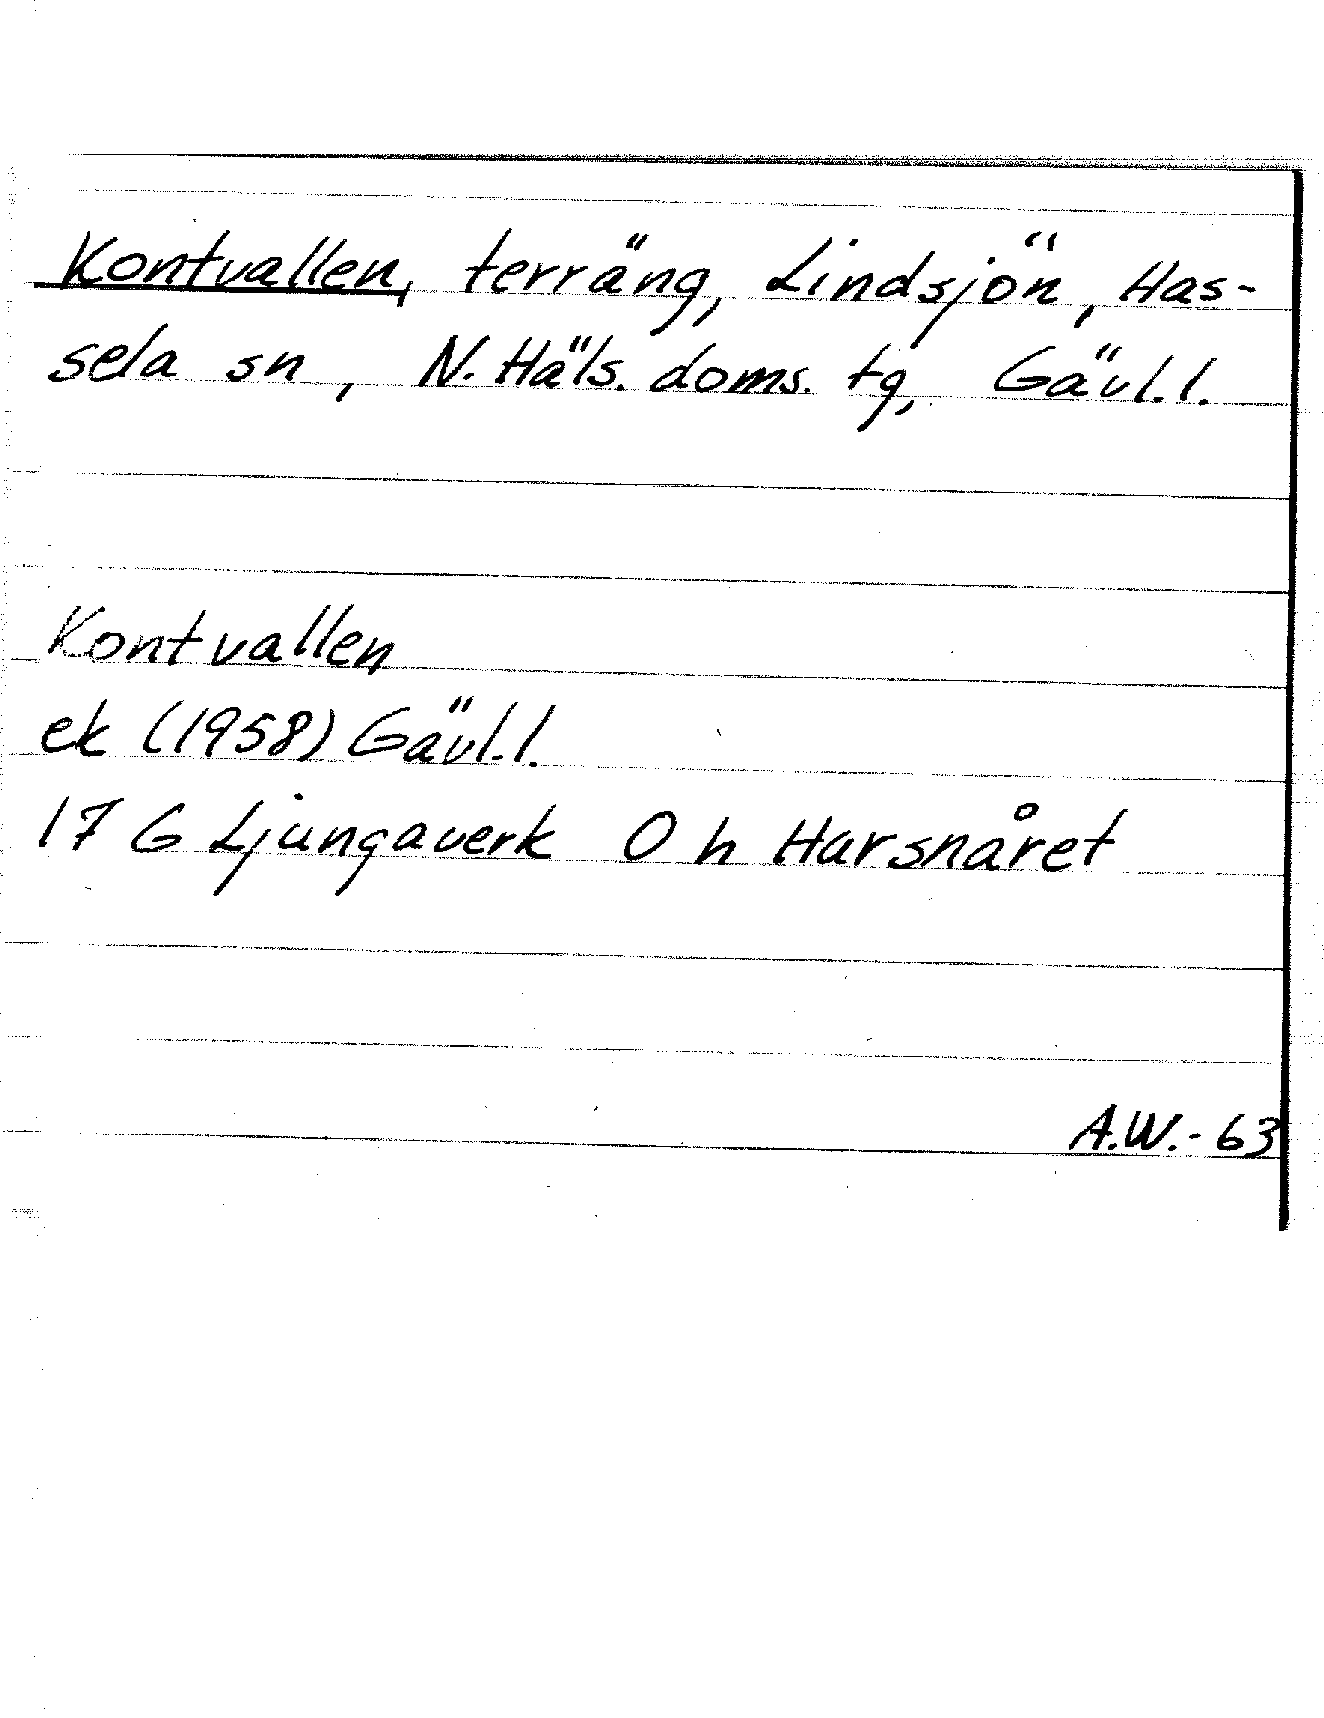 Kontvallen, terräng, Lindsjön, Has-
sela sn, N. Häls. doms. tg, Gävl.l.
Kontvallen
ek (1958) Gävl.l.
17 G Ljungaverk 0 h Harsnåret
A.W.-63